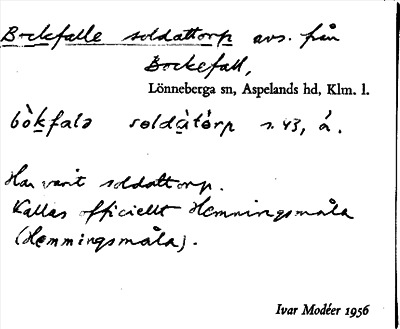 Bockfalle soldattorp avs. från
Bockefall,
Lönneberga sn, Aspelands hd, Klm. l.
bòkfalə soldàtòrp s. 43, á.
Har varit soldattorp.
Kallas officiellt Hemmingsmåla
(Hemmingsmåla).
Ivar Modéer 1956